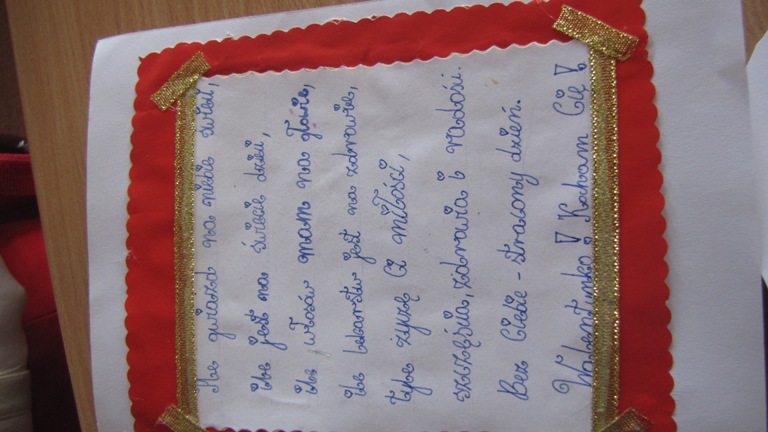 Ile gwiazd na niebie świeci,
ile jest na świecie dzieci,
ile włosów mam na głowie,
ile lekarstw jest na zdrowie,
tyle życzę Ci miłości,
szczęścia, zdrowia i radości.
Bez Ciebie - stracony dzień.
Walentynko! Kocham Cię!